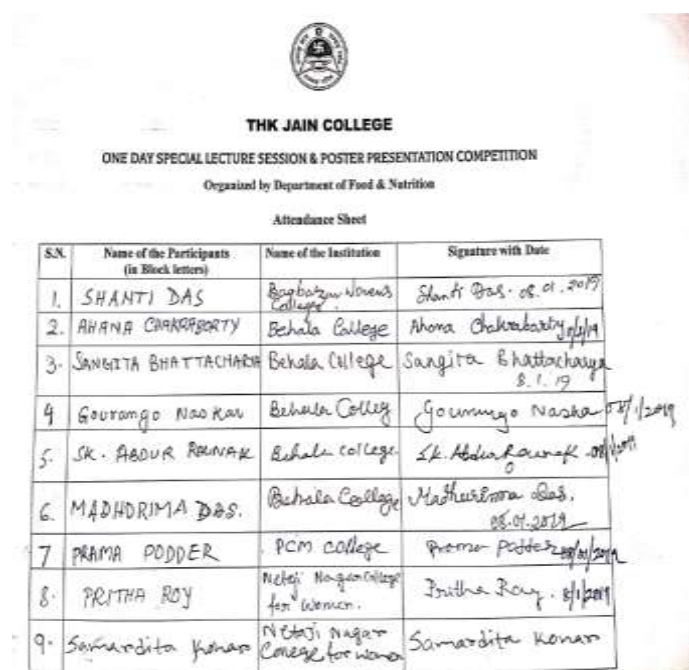 THK JAIN COLLEGE
ONE DAY SPECIAL LECTURE SESSION & POSTER PRESENTATION COMPETITION
Organized by Department of Food & Nutrition
Attendance Sheet
S.N. Name of the Participants (in Block letters) Name of the Institution Signature with Date
1. SHANTI DAS Bagbazar Women's College. Shanti Das. 08.01.2019
2. AHANA CHAKRABORTY Behala College Ahona Chakraborty
3. SANGITA BHATTACHARYA Behala College Sangita Bhattacharya
8.1.19
4 Gourango Naskar Behala Colleg Gourango Naska 08/1/2019
5. SK. ABDUR ROUNAK Behala college Sk. Abdur Rounak
6. MADHURIMA DAS. Behala College Madhurima Das.
08.01.2019
7 PRAMA PODDER PCM college Prama Podder
8. PRITHA ROY Netaji Nagar College for Women. Pritha Roy. 8/1/2019
9. Samardita Konar Netaji Nagar College for women Samardita Konar